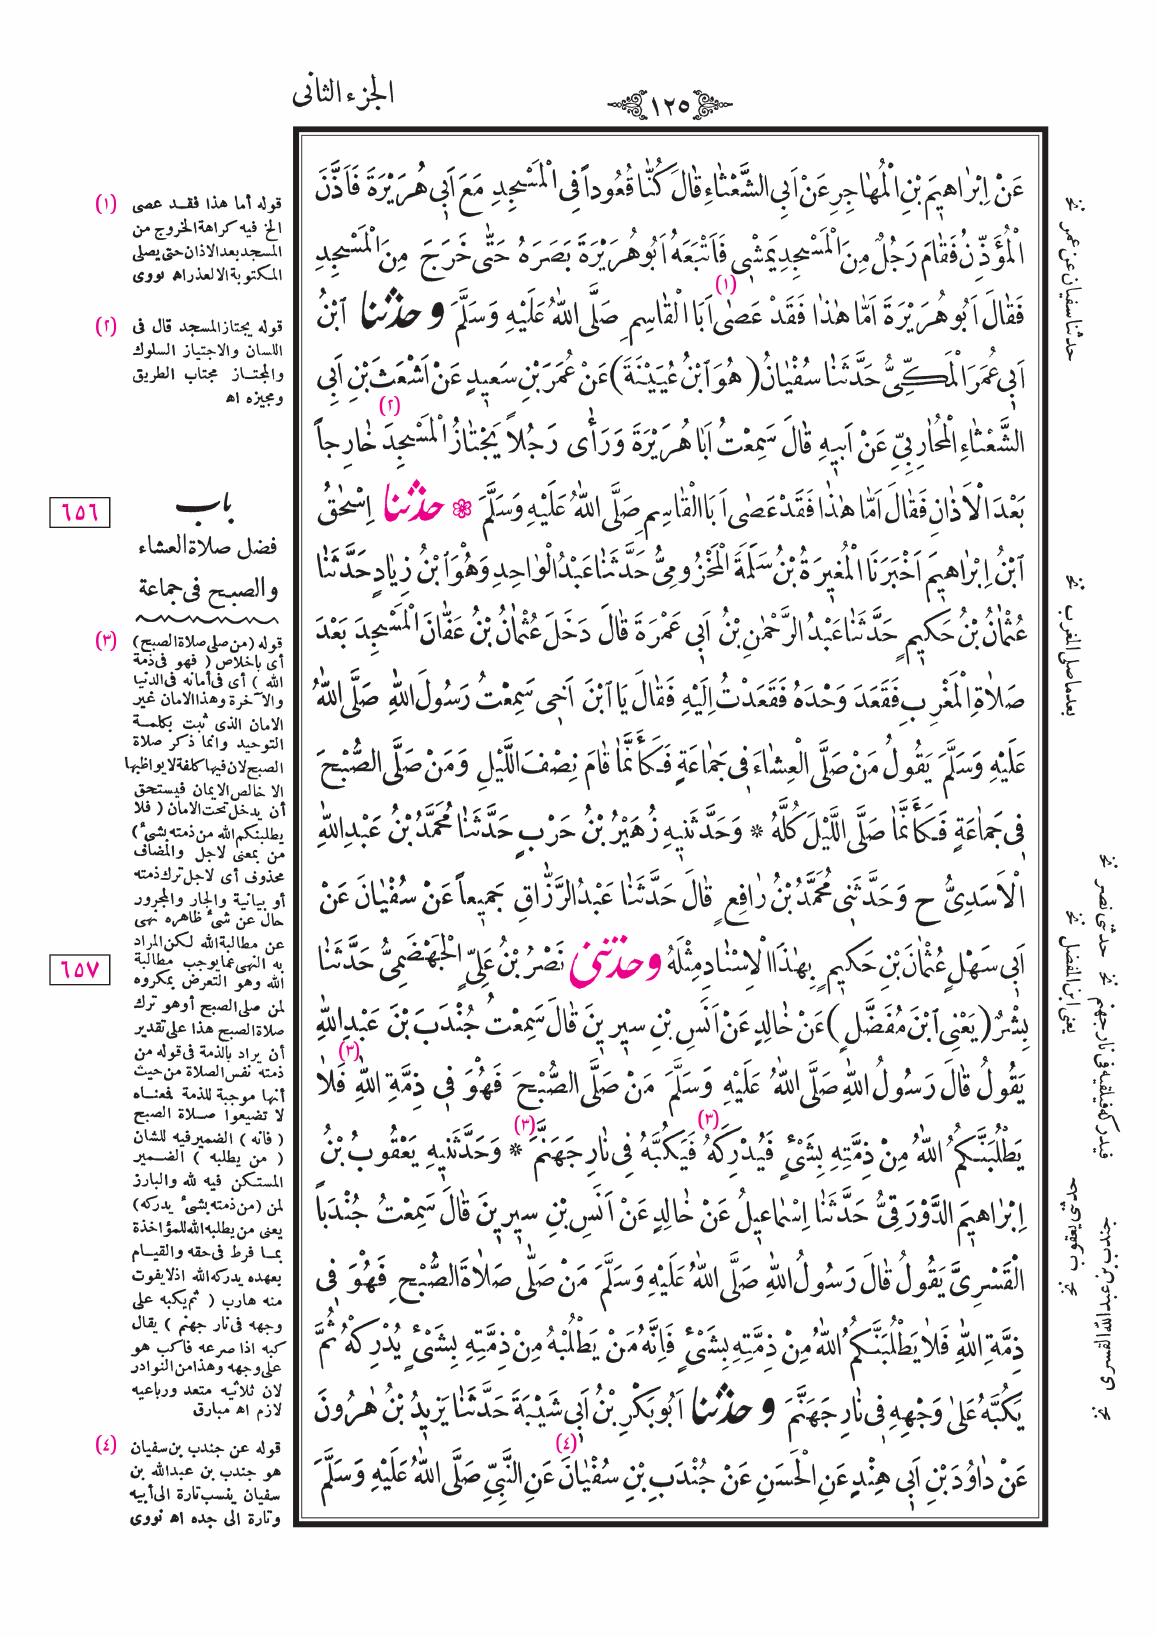 الجزء الثانى
١٢٥
عَنْ اِبْرَاهِيمَ بْنِ الْمُهَاجِرِ عَنْ اَبِى الشَّعْثَاءِ قَالَ كُنَّا قُعُوداً فِى الْمَسْجِدِ مَعَ اَبِى هُرَيْرَةَ فَاَذَّنَ
الْمُؤَذِّنُ فَقَامَ رَجُلٌ مِنَ الْمَسْجِدِ يَمْشِى فَاَتْبَعَهُ اَبُو هُرَيْرَةَ بَصَرَهُ حَتَّى خَرَجَ مِنَ الْمَسْجِدِ
فَقَالَ اَبُو هُرَيْرَةَ اَمَّا هٰذَا فَقَدْ عَصٰى (١) اَبَا الْقَاسِمِ صَلَّى اللهُ عَلَيْهِ وَسَلَّمَ و حدثنا ابْنُ
اَبِى عُمَرَ الْمَكِّىُّ حَدَّثَنَا سُفْيَانُ (هُوَ ابْنُ عُيَيْنَةَ) عَنْ عُمَرَ بْنِ سَعِيدٍ عَنْ اَشْعَثَ بْنِ اَبِى
الشَّعْثَاءِ الْمُحَارِبِىِّ عَنْ اَبِيهِ قَالَ سَمِعْتُ اَبَا هُرَيْرَةَ وَرَأٰى رَجُلاً يَجْتَازُ (٢) الْمَسْجِدَ خَارِجاً
بَعْدَ الْاَذَانِ فَقَالَ اَمَّا هٰذَا فَقَدْ عَصٰى اَبَا الْقَاسِمِ صَلَّى اللهُ عَلَيْهِ وَسَلَّمَ ۞ حدثنا اِسْحٰقُ
ابْنُ اِبْرَاهِيمَ اَخْبَرَنَا الْمُغِيرَةُ بْنُ سَلَمَةَ الْمَخْزُومِىُّ حَدَّثَنَا عَبْدُ الْوَاحِدِ وَهُوَ ابْنُ زِيَادٍ حَدَّثَنَا
عُثْمَانُ بْنُ حَكِيمٍ حَدَّثَنَا عَبْدُ الرَّحْمٰنِ بْنُ اَبِى عَمْرَةَ قَالَ دَخَلَ عُثْمَانُ بْنُ عَفَّانَ الْمَسْجِدَ بَعْدَ
صَلَاةِ الْمَغْرِبِ فَقَعَدَ وَحْدَهُ فَقَعَدْتُ اِلَيْهِ فَقَالَ يَا ابْنَ اَخِى سَمِعْتُ رَسُولَ اللهِ صَلَّى اللهُ
عَلَيْهِ وَسَلَّمَ يَقُولُ مَنْ صَلَّى الْعِشَاءَ فِى جَمَاعَةٍ فَكَأَنَّمَا قَامَ نِصْفَ اللَّيْلِ وَمَنْ صَلَّى الصُّبْحَ
فِى جَمَاعَةٍ فَكَأَنَّمَا صَلَّى اللَّيْلَ كُلَّهُ * وَحَدَّثَنِيهِ زُهَيْرُ بْنُ حَرْبٍ حَدَّثَنَا مُحَمَّدُ بْنُ عَبْدِ اللهِ
الْاَسَدِىُّ ح وَحَدَّثَنِى مُحَمَّدُ بْنُ رَافِعٍ قَالَ حَدَّثَنَا عَبْدُ الرَّزَّاقِ جَمِيعاً عَنْ سُفْيَانَ عَنْ
اَبِى سَهْلٍ عُثْمَانَ بْنِ حَكِيمٍ بِهٰذَا الْاِسْنَادِ مِثْلَهُ وحدثنى نَصْرُ بْنُ عَلِىٍّ الْجَهْضَمِىُّ حَدَّثَنَا
بِشْرٌ (يَعْنِى ابْنَ مُفَضَّلٍ) عَنْ خَالِدٍ عَنْ اَنَسِ بْنِ سِيرِينَ قَالَ سَمِعْتُ جُنْدَبَ بْنَ عَبْدِ اللهِ
يَقُولُ قَالَ رَسُولُ اللهِ صَلَّى اللهُ عَلَيْهِ وَسَلَّمَ مَنْ صَلَّى الصُّبْحَ فَهُوَ فِى ذِمَّةِ اللهِ (٣) فَلَا
يَطْلُبَنَّكُمُ اللهُ مِنْ ذِمَّتِهِ بِشَىْءٍ فَيُدْرِكَهُ (٣) فَيَكُبَّهُ فِى نَارِ جَهَنَّمَ (٣) * وَحَدَّثَنِيهِ يَعْقُوبُ بْنُ
اِبْرَاهِيمَ الدَّوْرَقِىُّ حَدَّثَنَا اِسْمَاعِيلُ عَنْ خَالِدٍ عَنْ اَنَسِ بْنِ سِيرِينَ قَالَ سَمِعْتُ جُنْدَباً
الْقَسْرِىَّ يَقُولُ قَالَ رَسُولُ اللهِ صَلَّى اللهُ عَلَيْهِ وَسَلَّمَ مَنْ صَلَّى صَلَاةَ الصُّبْحِ فَهُوَ فِى
ذِمَّةِ اللهِ فَلَا يَطْلُبَنَّكُمُ اللهُ مِنْ ذِمَّتِهِ بِشَىْءٍ فَاِنَّهُ مَنْ يَطْلُبْهُ مِنْ ذِمَّتِهِ بِشَىْءٍ يُدْرِكْهُ ثُمَّ
يَكُبَّهُ عَلٰى وَجْهِهِ فِى نَارِ جَهَنَّمَ و حدثنا اَبُو بَكْرِ بْنُ اَبِى شَيْبَةَ حَدَّثَنَا يَزِيدُ بْنُ هٰرُونَ
عَنْ دَاوُدَ بْنِ اَبِى هِنْدٍ عَنِ الْحَسَنِ عَنْ جُنْدَبِ بْنِ سُفْيَانَ (٤) عَنِ النَّبِىِّ صَلَّى اللهُ عَلَيْهِ وَسَلَّمَ
(١) قوله أما هذا فقد عصى
الخ فيه كراهة الخروج من
المسجد بعد الاذان حتى يصلى
المكتوبة الا لعذر اه نووى
(٢) قوله يجتاز المسجد قال فى
اللسان والاجتياز السلوك
والمجتاز مجتاب الطريق
ومجيزه اه
٦٥٦
باب
فضل صلاة العشاء
والصبح فى جماعة
(٣) قوله (من صلى صلاة الصبح)
أى باخلاص (فهو فى ذمة
الله) أى فى أمانه فى الدنيا
والآخرة وهذا الامان غير
الامان الذى ثبت بكلمة
التوحيد وانما ذكر صلاة
الصبح لان فيها كلفة لا يواظبها
الا خالص الايمان فيستحق
أن يدخل تحت الامان (فلا
يطلبنكم الله من ذمته بشئ)
من بمعنى لاجل والمضاف
محذوف أى لاجل ترك ذمته
أو بيانية والجار والمجرور
حال عن شئ ظاهره نهى
عن مطالبة الله لكن المراد
به النهى عما يوجب مطالبة
الله وهو التعرض بمكروه
لمن صلى الصبح أوهو ترك
صلاة الصبح هذا على تقدير
أن يراد بالذمة فى قوله من
ذمته نفس الصلاة من حيث
أنها موجبة للذمة فمعناه
لا تضيعوا صلاة الصبح
(فانه) الضمير فيه للشان
(من يطلبه) الضمير
المستكن فيه لله والبارز
لمن (من ذمته بشئ يدركه)
يعنى من يطلبه الله للمؤاخذة
بما فرط فى حقه والقيام
بعهده يدركه الله اذ لا يفوت
منه هارب (ثم يكبه على
وجهه فى نار جهنم) يقال
كبه اذا صرعه فاكب هو
على وجهه وهذا من النوادر
لان ثلاثيه متعد ورباعيه
لازم اه مبارق
٦٥٧
(٤) قوله عن جندب بن سفيان
هو جندب بن عبدالله بن
سفيان ينسب تارة الى أبيه
وتارة الى جده اه نووى
حدثنا سفيان عن عمر نخ
بعد ما صلى المغرب نخ
يعنى ابن المفضل نخ
حدثنى نصر نخ
فيدركه فيلقيه فى نار جهنم نخ
حدثنى يعقوب نخ
جندب بن عبدالله القسرى نخ